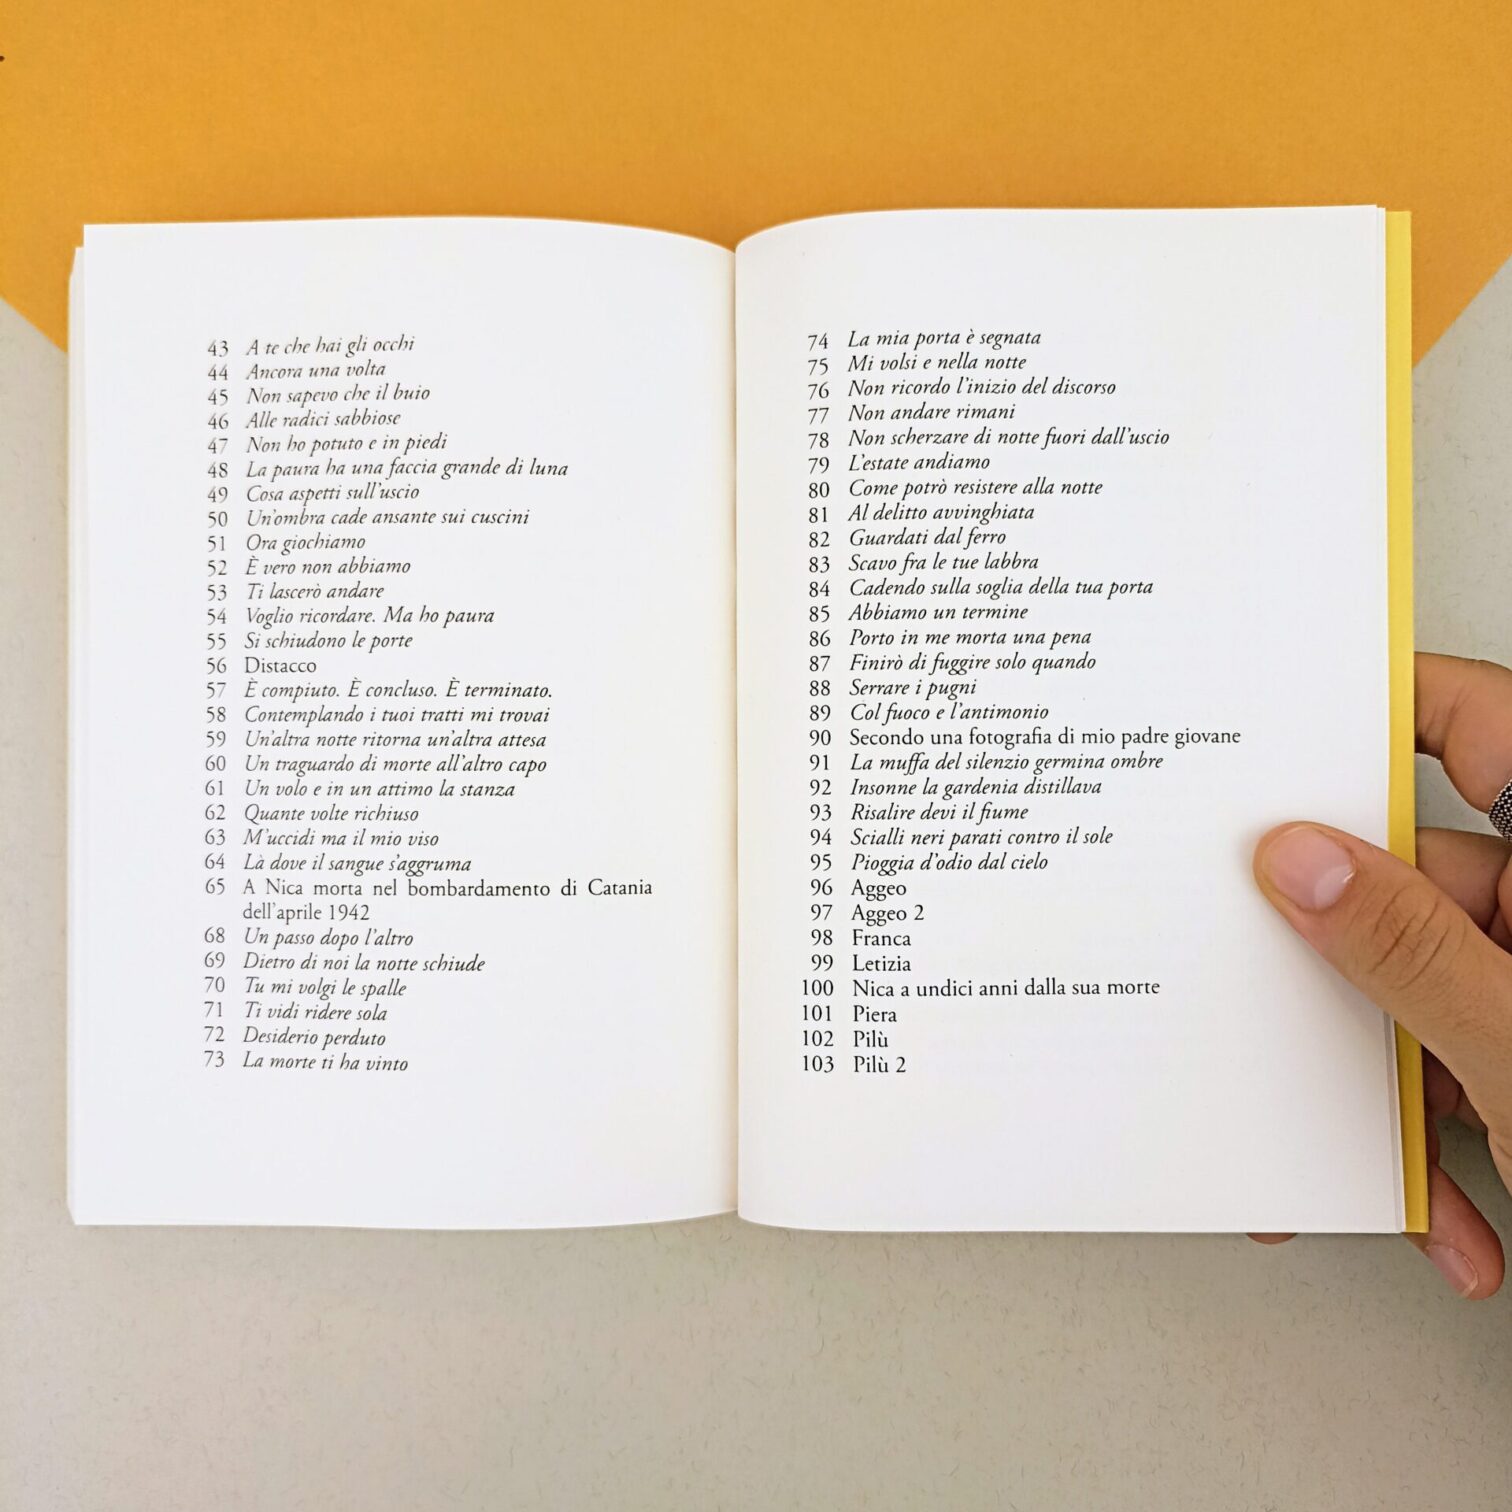 43 A te che hai gli occhi
44 Ancora una volta
45 Non sapevo che il buio
46 Alle radici sabbiose
47 Non ho potuto e in piedi
48 La paura ha una faccia grande di luna
49 Cosa aspetti sull'uscio
50 Un'ombra cade ansante sui cuscini
51 Ora giochiamo
52 È vero non abbiamo
53 Ti lascerò andare
54 Voglio ricordare. Ma ho paura
55 Si schiudono le porte
56 Distacco
57 È compiuto. È concluso. È terminato.
58 Contemplando i tuoi tratti mi trovai
59 Un'altra notte ritorna un'altra attesa
60 Un traguardo di morte all'altro capo
61 Un volo e in un attimo la stanza
62 Quante volte richiuso
63 M'uccidi ma il mio viso
64 Là dove il sangue s'aggruma
65 A Nica morta nel bombardamento di Catania
dell'aprile 1942
68 Un passo dopo l'altro
69 Dietro di noi la notte schiude
70 Tu mi volgi le spalle
71 Ti vidi ridere sola
72 Desiderio perduto
73 La morte ti ha vinto
74 La mia porta è segnata
75 Mi volsi e nella notte
76 Non ricordo l'inizio del discorso
77 Non andare rimani
78 Non scherzare di notte fuori dall'uscio
79 L'estate andiamo
80 Come potrò resistere alla notte
81 Al delitto avvinghiata
82 Guardati dal ferro
83 Scavo fra le tue labbra
84 Cadendo sulla soglia della tua porta
85 Abbiamo un termine
86 Porto in me morta una pena
87 Finirò di fuggire solo quando
88 Serrare i pugni
89 Col fuoco e l'antimonio
90 Secondo una fotografia di mio padre giovane
91 La muffa del silenzio germina ombre
92 Insonne la gardenia distillava
93 Risalire devi il fiume
94 Scialli neri parati contro il sole
95 Pioggia d'odio dal cielo
96 Aggeo
97 Aggeo 2
98 Franca
99 Letizia
100 Nica a undici anni dalla sua morte
101 Piera
102 Pilù
103 Pilù 2